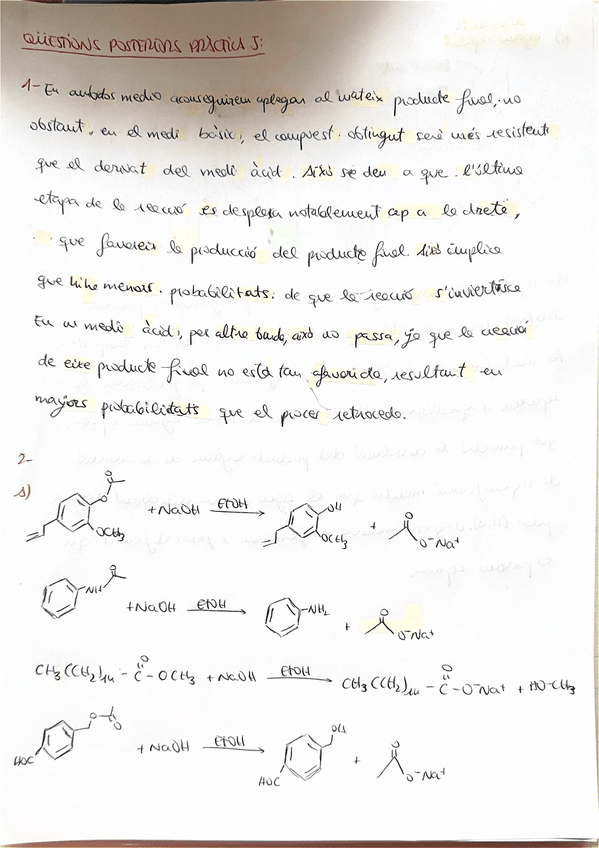 QÜESTIONS POSTERIORS PRÀCTICA 5:
1- En ambdos medio aconseguirem aplegar al mateix producte final, no
obstant, en el medi bàsic, el compuest obtingut serà més resistent
que el derivat del medi àcid. Això se deu a que l'última
etapa de la reacció es desplaça notablement cap a la dreta,
que favoreix la producció del producte final. Això implica
que hi ha menors probabilitats de que la reacció s'invierteixca
En un medio àcid, per altra banda, això no passa, ja que la reacció
de eixe producte final no està tan afavorida, resultant en
majors probabilitats que el procés retrocedo.
2-
a)
O O OCH3 + NaOH EtOH OH OCH3 + O O⁻Na⁺
NH O + NaOH EtOH NH2 + O O⁻Na⁺
CH3(CH2)14 - C(=O) - OCH3 + NaOH EtOH CH3(CH2)14 - C(=O) - O⁻Na⁺ + HO-CH3
HOC O O + NaOH EtOH HOC OH + O O⁻Na⁺